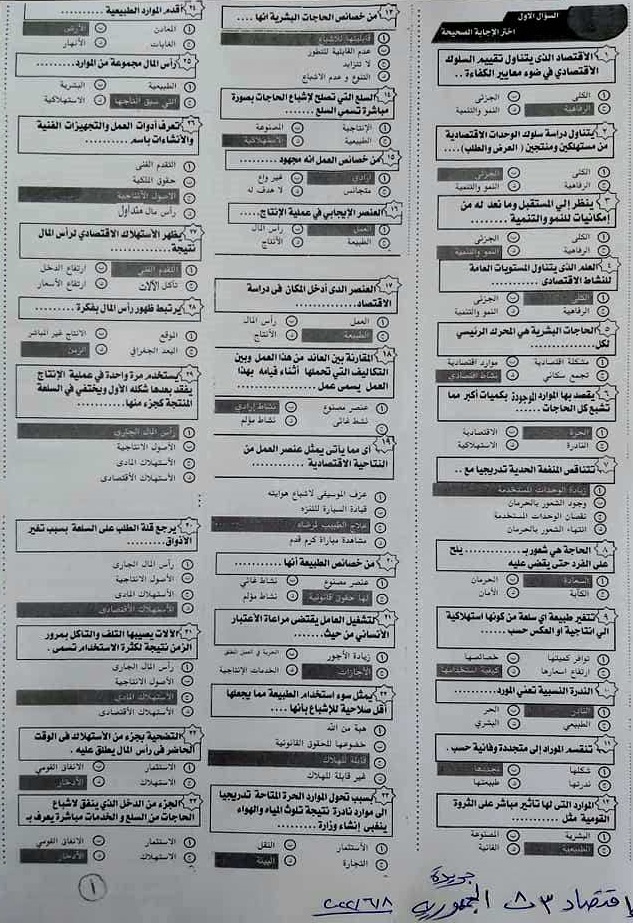 السؤال الأول
اختر الإجابة الصحيحة
١ الاقتصاد الذى يتناول تقييم السلوك
الأقتصادي في ضوء معايير الكفاءة ..
أ الكلى ب الجزئى
ج الرفاهية د النمو والتنمية
٢ يتناول دراسة سلوك الوحدات الاقتصادية
من مستهلكين ومنتجين ( العرض والطلب)....
أ الكلى ب الجزئى
ج الرفاهية د النمو والتنمية
٣ ينظر إلي المستقبل وما نعد له من
إمكانيات للنمو والتنمية ........
أ الكلى ب الجزئى
ج الرفاهية د النمو والتنمية
٤ العلم الذى يتناول المستويات العامة
للنشاط الاقتصادى ..........
أ الكلى ب الجزئى
ج الرفاهية د النمو والتنمية
٥ الحاجات البشرية هي المحرك الرئيسي
لكل..........
أ مشكلة اقتصادية ب موارد اقتصادية
ج تجمع سكاني د نشاط اقتصادى
٦ يقصد بها الموارد الموجودة بكميات أكبر مما
تشبع كل الحاجات .......
أ الحرة ب الاقتصادية
ج النادرة د الاستهلاكية
٧ تتناقص المنفعة الحدية تدريجيا مع ..
أ زيادة الوحدات المستخدمة
ب وجود الشعور بالحرمان
ج نقصان الوحدات المستخدمة
د انتهاء الشعور بالحرمان
٨ الحاجة هي شعور بـ .......... يلح
على الفرد حتى يقضى عليه
أ السعادة ب الحرمان
ج الكآبة د الأمان
٩ تتغير طبيعة أي سلعة من كونها استهلاكية
الي انتاجية أو العكس حسب .....
أ توافر كميتها ب خصائصها
ج ارتفاع اسعارها د كيفية استخدامها
١٠ الندرة النسبية تعني المورد..........
أ النادر ب الحر
ج الطبيعي د البشري
١١ تنقسم الموارد إلى متجددة وفانية حسب .
أ شكلها ب تجددها
ج ندرتها د طبيعتها
١٢ الموارد التى لها تأثير مباشر على الثروة
القومية مثل ........
أ البشرية ب المصنوعة
ج الطبيعية د الفانية
١٣ من خصائص الحاجات البشرية انها ....
أ قابليتها للاشباع
ب عدم القابلية للتطور
ج لا تتزايد
د التنوع و عدم الاشباع
١٤ السلع التي تصلح لإشباع الحاجات بصورة
مباشرة تسمى السلع .......
أ الإنتاجية ب المصنوعة
ج الطبيعية د الاستهلاكية
١٥ من خصائص العمل انه مجهود .........
أ ارادي ب غير واع
ج متجانس د لا هدف له
١٦ العنصر الإيجابي في عملية الإنتاج....
أ العمل ب رأس المال
ج الطبيعة د الأنتاج
١٧ العنصر الذى أدخل المكان فى دراسة
الاقتصاد..........
أ العمل ب رأس المال
ج الطبيعة د الأنتاج
١٨ المقارنة بين العائد من هذا العمل وبين
التكاليف التي تحملها أثناء قيامه بهذا
العمل يسمى عمل....
أ عنصر مصنوع ب نشاط إرادي
ج نشاط غائى د نشاط مؤلم
١٩ أى مما يأتى يمثل عنصر العمل من
الناحية الاقتصادية ..........
أ عزف الموسيقى لاشباع هوايته
ب قيادة السيارة للتنزه
ج علاج الطبيب لمرضاه
د مشاهدة مباراة كرم قدم
٢٠ من خصائص الطبيعة أنها ........
أ عنصر مصنوع ب نشاط غائي
ج لها حقوق قانونية د نشاط مؤلم
٢١ لتشغيل العامل يقتضى مراعاة الأعتبار
الأنساني من حيث........
أ زيادة الأجور ب الحرية في العمل المطلق
ج الأجازات د الخدمات الإنتاجية
٢٢ يمثل سوء استخدام الطبيعة مما يجعلها
أقل صلاحية للإشباع بأنها ....
أ هبة من الله
ب خضوعها للحقوق القانونية
ج قابلة للهلاك
د غير قابلة للهلاك
٢٣ بسبب تحول الموارد الحرة المتاحة تدريجيا
الى موارد نادرة نتيجة تلوث المياه والهواء
ينبغى إنشاء وزارة ........
أ الأستثمار ب النقل
ج التجارة د البيئة
٢٤ أقدم الموارد الطبيعية ............
أ المعادن ب الأرض
ج الغابات د الأنهار
٢٥ رأس المال مجموعة من الموارد..........
أ الطبيعية ب البشرية
ج التي سبق انتاجها د الاستهلاكية
٢٦ تعرف أدوات العمل والتجهيزات الفنية
والأنشاءات باسم ..........
أ التقدم الفنى
ب حقوق الملكية
ج الاصول الأنتاجية
د رأس مال متداول
٢٧ يظهر الأستهلاك الاقتصادي لرأس المال
نتيجة..........
أ التقدم الفنى ب ارتفاع الدخل
ج تآكل الآلات د ارتفاع الأسعار
٢٨ يرتبط ظهور رأس المال بفكرة ........
أ الوقع ب الانتاج غير المباشر
ج البعد الجغرافي د الزمن
٢٩ يستخدم مرة واحدة في عملية الإنتاج
يفقد بعدها شكله الأول ويختفى في السلعة
المنتجة كجزء منها........
أ رأس المال الجارى
ب الأصول الأنتاجية
ج الأستهلاك المادى
د الأستهلاك الأقتصادى
٣٠ يرجع قلة الطلب على السلعة بسبب تغير
الأذواق..........
أ رأس المال الجارى
ب الأصول الانتاجية
ج الأستهلاك المادى
د الأستهلاك الأقتصادى
٣١ الآلات يصيبها التلف والتآكل بمرور
الزمن نتيجة لكثرة الاستخدام تسمى .
أ رأس المال الجارى
ب الأصول الأنتاجية
ج الأستهلاك المادى
د الأستهلاك الأقتصادى
٣٢ التضحية بجزء من الأستهلاك فى الوقت
الحاضر فى رأس المال يطلق عليه .
أ الاستثمار ب الانفاق القومي
ج الاستهلاك د الأدخار
٣٣ الجزء من الدخل الذي ينفق لاشباع
الحاجات من السلع و الخدمات مباشرة يعرف بـ
أ الاستثمار ب الانفاق القومى
ج الاستهلاك د الأدخار
١
اقتصاد ٣ث ٨ جريدة الجمهورية ٢٠٢١/٦/٨